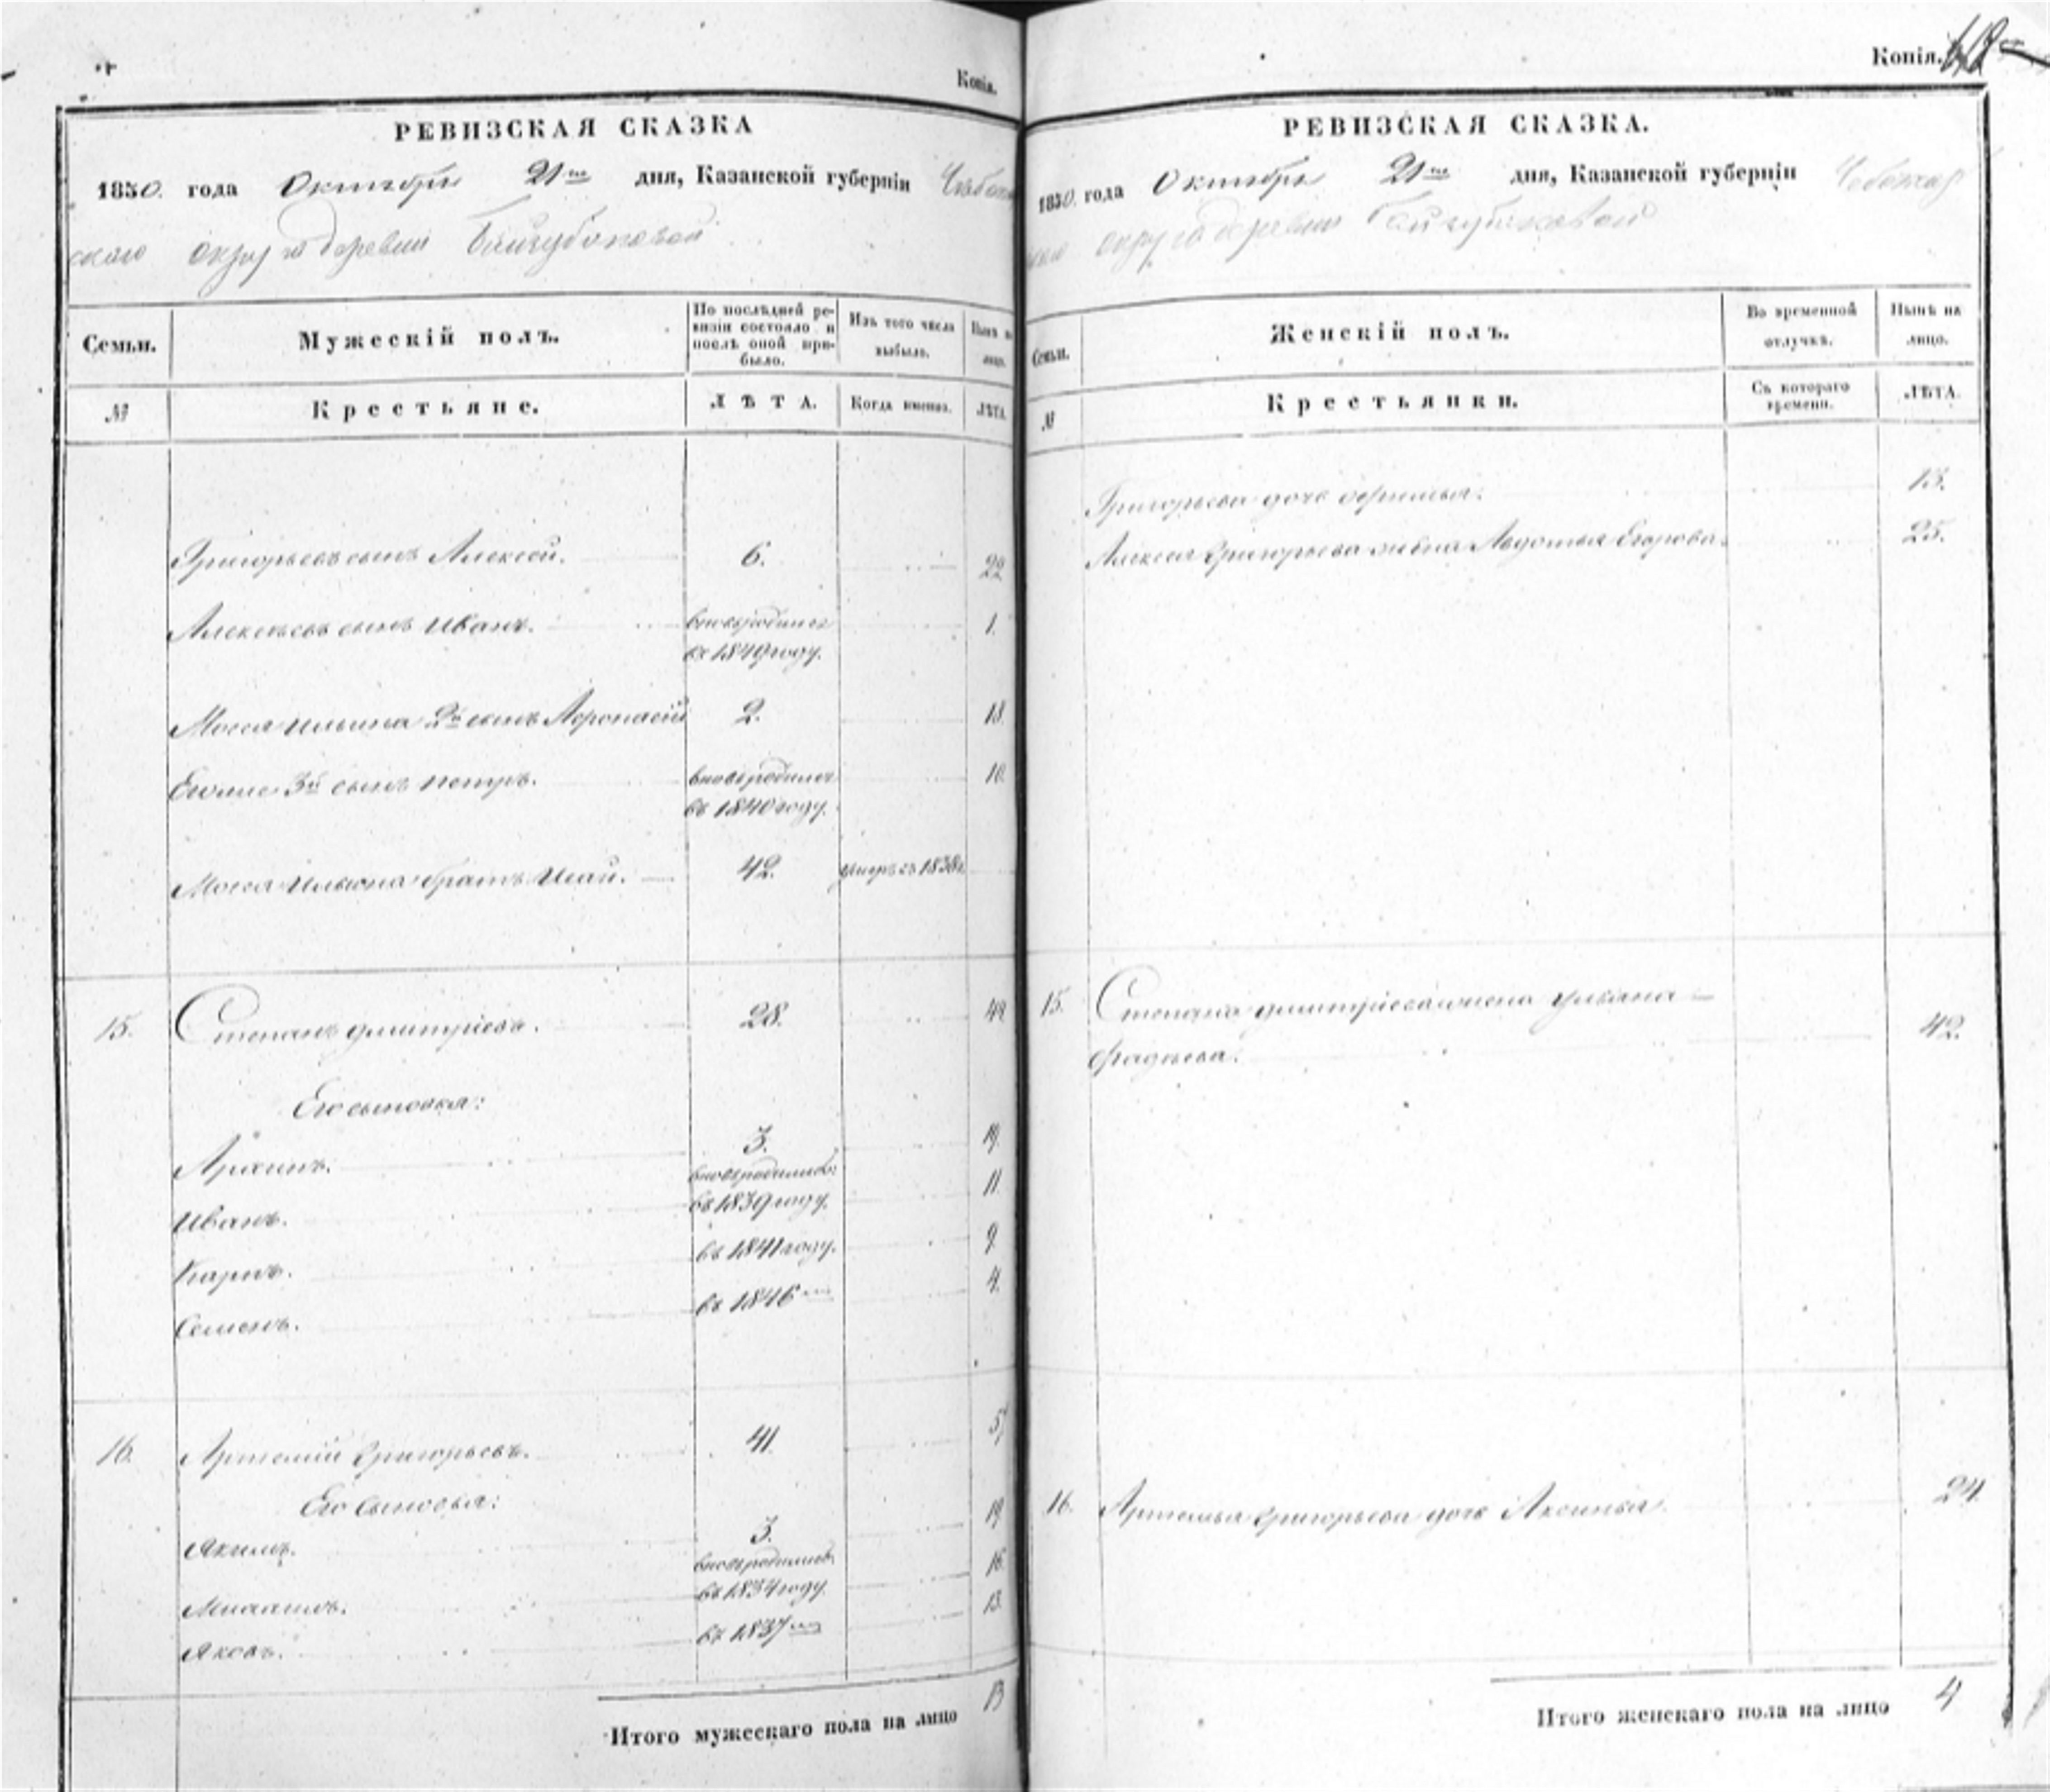 Копія.
РЕВИЗСКАЯ СКАЗКА
1850. года Октября 21го дня, Казанской губерніи Чебокса
скаго округа деревни
Семьи.
Мужескій полъ.
По послѣдней ре-
визіи состояло и
послѣ оной при-
было.
Изъ того числа
выбыло.
Нынѣ на
лицо.
№
Крестьяне.
ЛѢТА.
Когда именно.
ЛѢТА.
Григорьевъ сынъ Алексей. 6. 22
Алексѣевъ сынъ Иванъ. вновьродился 1.
въ 1849 году.
Мосея Ильина 2й сынъ Афонасий 2. 18.
Егоже 3й сынъ Петръ. вновьродился 10.
въ 1840 году.
Мосея Ильина братъ Исай. 42. умеръ въ 1838г.
15. Степанъ Дмитріевъ. 28. 44
Его сыновья:
3. 19.
Архипъ. вновьродились:
въ 1839 году. 11.
Иванъ.
въ 1841 году. 9.
Карпъ.
въ 1846 4.
Семенъ.
16. Артемий Григорьевъ. 41. 57
Его сыновья:
Якимъ. 3. 19
вновьродились
въ 1834 году. 16.
въ 1837 13.
Яковъ.
Итого мужескаго пола на лицо 13
Копія.
РЕВИЗСКАЯ СКАЗКА.
1850. года Октября 21го дня, Казанской губерніи Чебоксар
округа деревни
Семьи.
Женскій полъ.
Во временной
отлучкѣ.
Нынѣ на
лицо.
№
Крестьянки.
Съ котораго
времени.
ЛѢТА.
Григорьева дочь 13.
Алексея Григорьева жена Авдотья Егорова. 25.
15. Степана Дмитріева жена Ульяна
Фадѣева. 42.
16. Артемья Григорьева дочь Аксинья. 24.
Итого женскаго пола на лицо 4